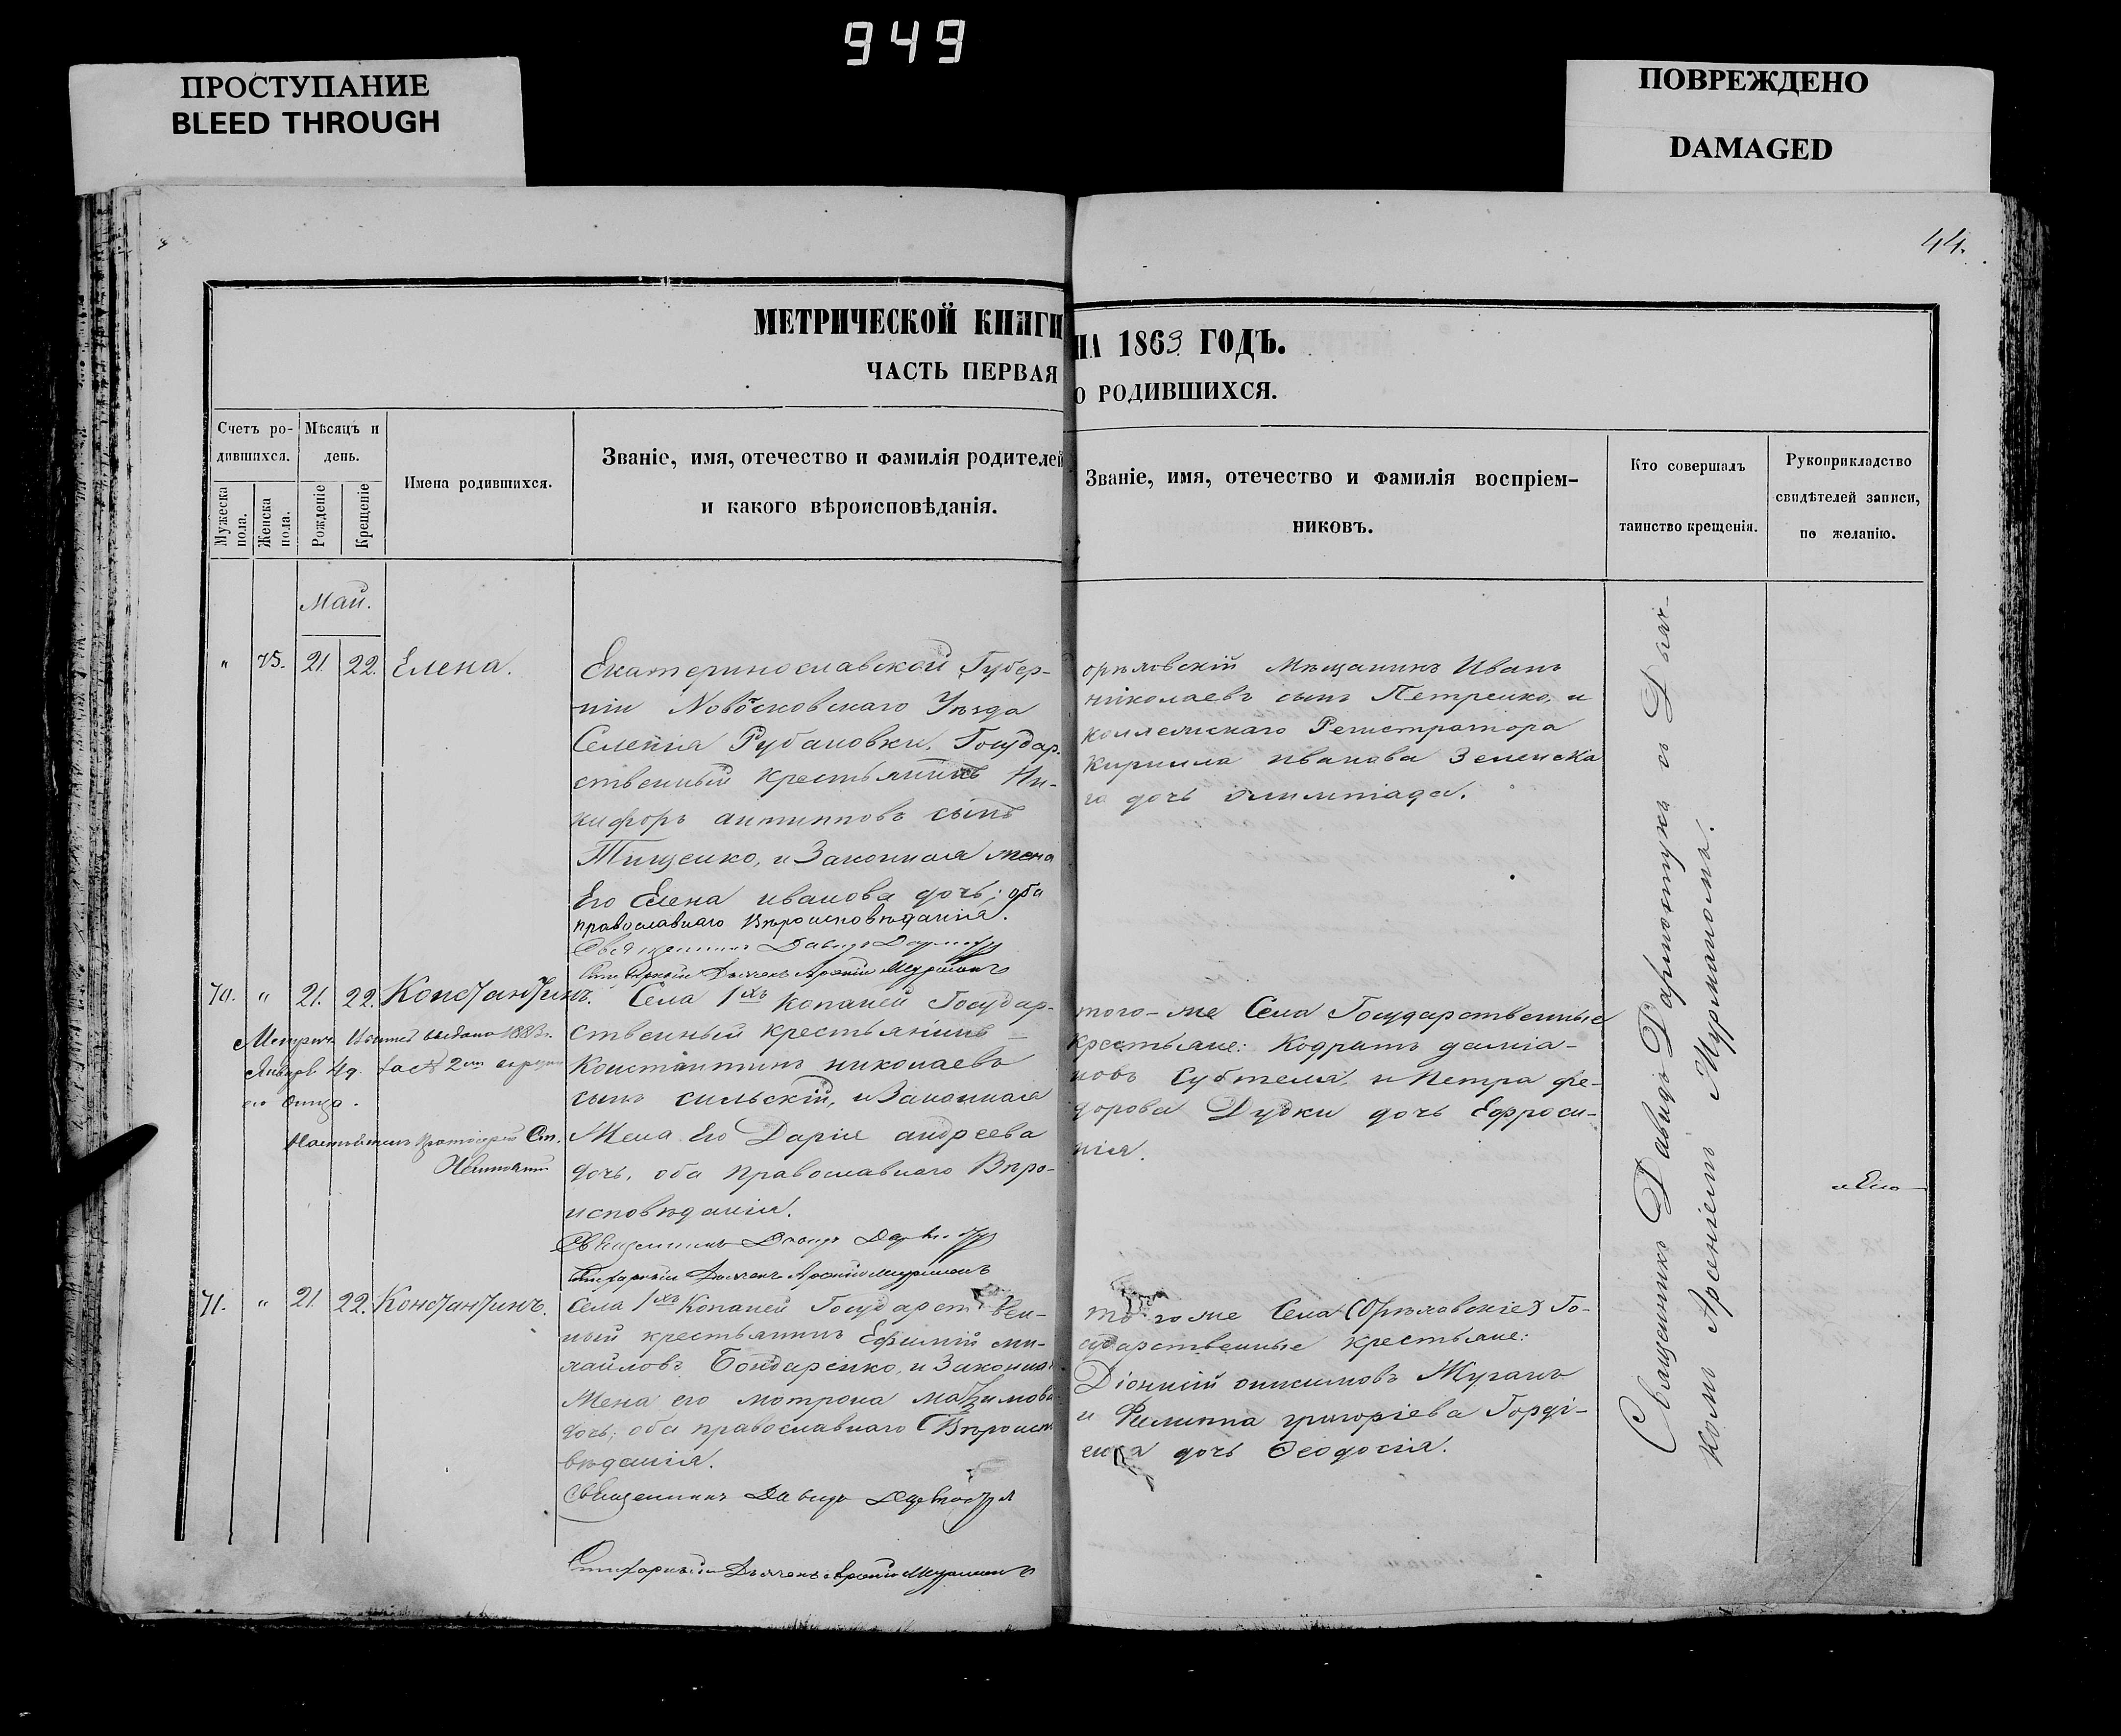 949
ПРОСТУПАНИЕ
BLEED THROUGH
ПОВРЕЖДЕНО
DAMAGED
44.
МЕТРИЧЕСКОЙ КНИГИ НА 1863 ГОДЪ.
ЧАСТЬ ПЕРВАЯ О РОДИВШИХСЯ.
Счетъ ро-
дившихся.
Мужеска
пола.
Женска
пола.
Мѣсяцъ и
день.
Рожденіе
Крещеніе
Имена родившихся.
Званіе, имя, отечество и фамилія родителей
и какого вѣроисповѣданія.
Званіе, имя, отечество и фамилія воспріем-
никовъ.
Кто совершалъ
таинство крещенія.
Рукоприкладство
свидѣтелей записи,
по желанію.
Май.
" 75. 21. 22. Елена.
Екатеринославской Губер-
ніи Новомосковскаго Уѣзда
Селенія Рубановки. Государ-
ственный крестьянинъ Ни-
кифоръ антиповъ сынъ
Тищенко, и Законная жена
Его Елена иванова дочь; оба
православнаго Вѣроисповѣданія.
Священникъ Давидъ
Стихарный Дьячекъ Арсеній Мурманъ
орѣховскій Мѣщанинъ Иванъ
николаевъ сынъ Петренко, и
коллежскаго Регистратора
Кирилла иванова Зеленска
го дочь олимпіада.
70. " 21. 22. Константинъ.
Метрич. выдана 1883 г.
Января 4 д.
его отца.
Протоіерей Ст.
Села 1хъ Копаней Государ-
ственный крестьянинъ
Константинъ николаевъ
сынъ сильскій, и Законная
Жена Его Дарія андреева
дочь, оба Православнаго Вѣро-
исповѣданія.
Священникъ Давидъ
Стихарный Дьячекъ Арсеній Мурманъ
того-же Села Государственные
крестьяне: Кодратъ даміа-
новъ и Петра фе-
дорова Дудки дочь Ефроси-
нія.
71. " 21. 22. Константинъ.
Села 1хъ Копаней Государствен-
ный крестьянинъ Ефимій ми-
хайловъ Бондаренко, и Законная
Жена его мотрона
дочь; оба православнаго Вѣроиспо-
вѣданія.
Священникъ Давидъ
Стихарный Дьячекъ Арсеній Мурманъ
того же Села (Орѣховскіе) Го-
сударственные крестьяне:
Діонисій онисимовъ Жуганъ
и Филиппа григоріева Горді-
енка дочь Ѳеодосія.
Священникъ Давидъ Дармостукъ съ Дьяч-
комъ Арсеніемъ Мурманомъ.